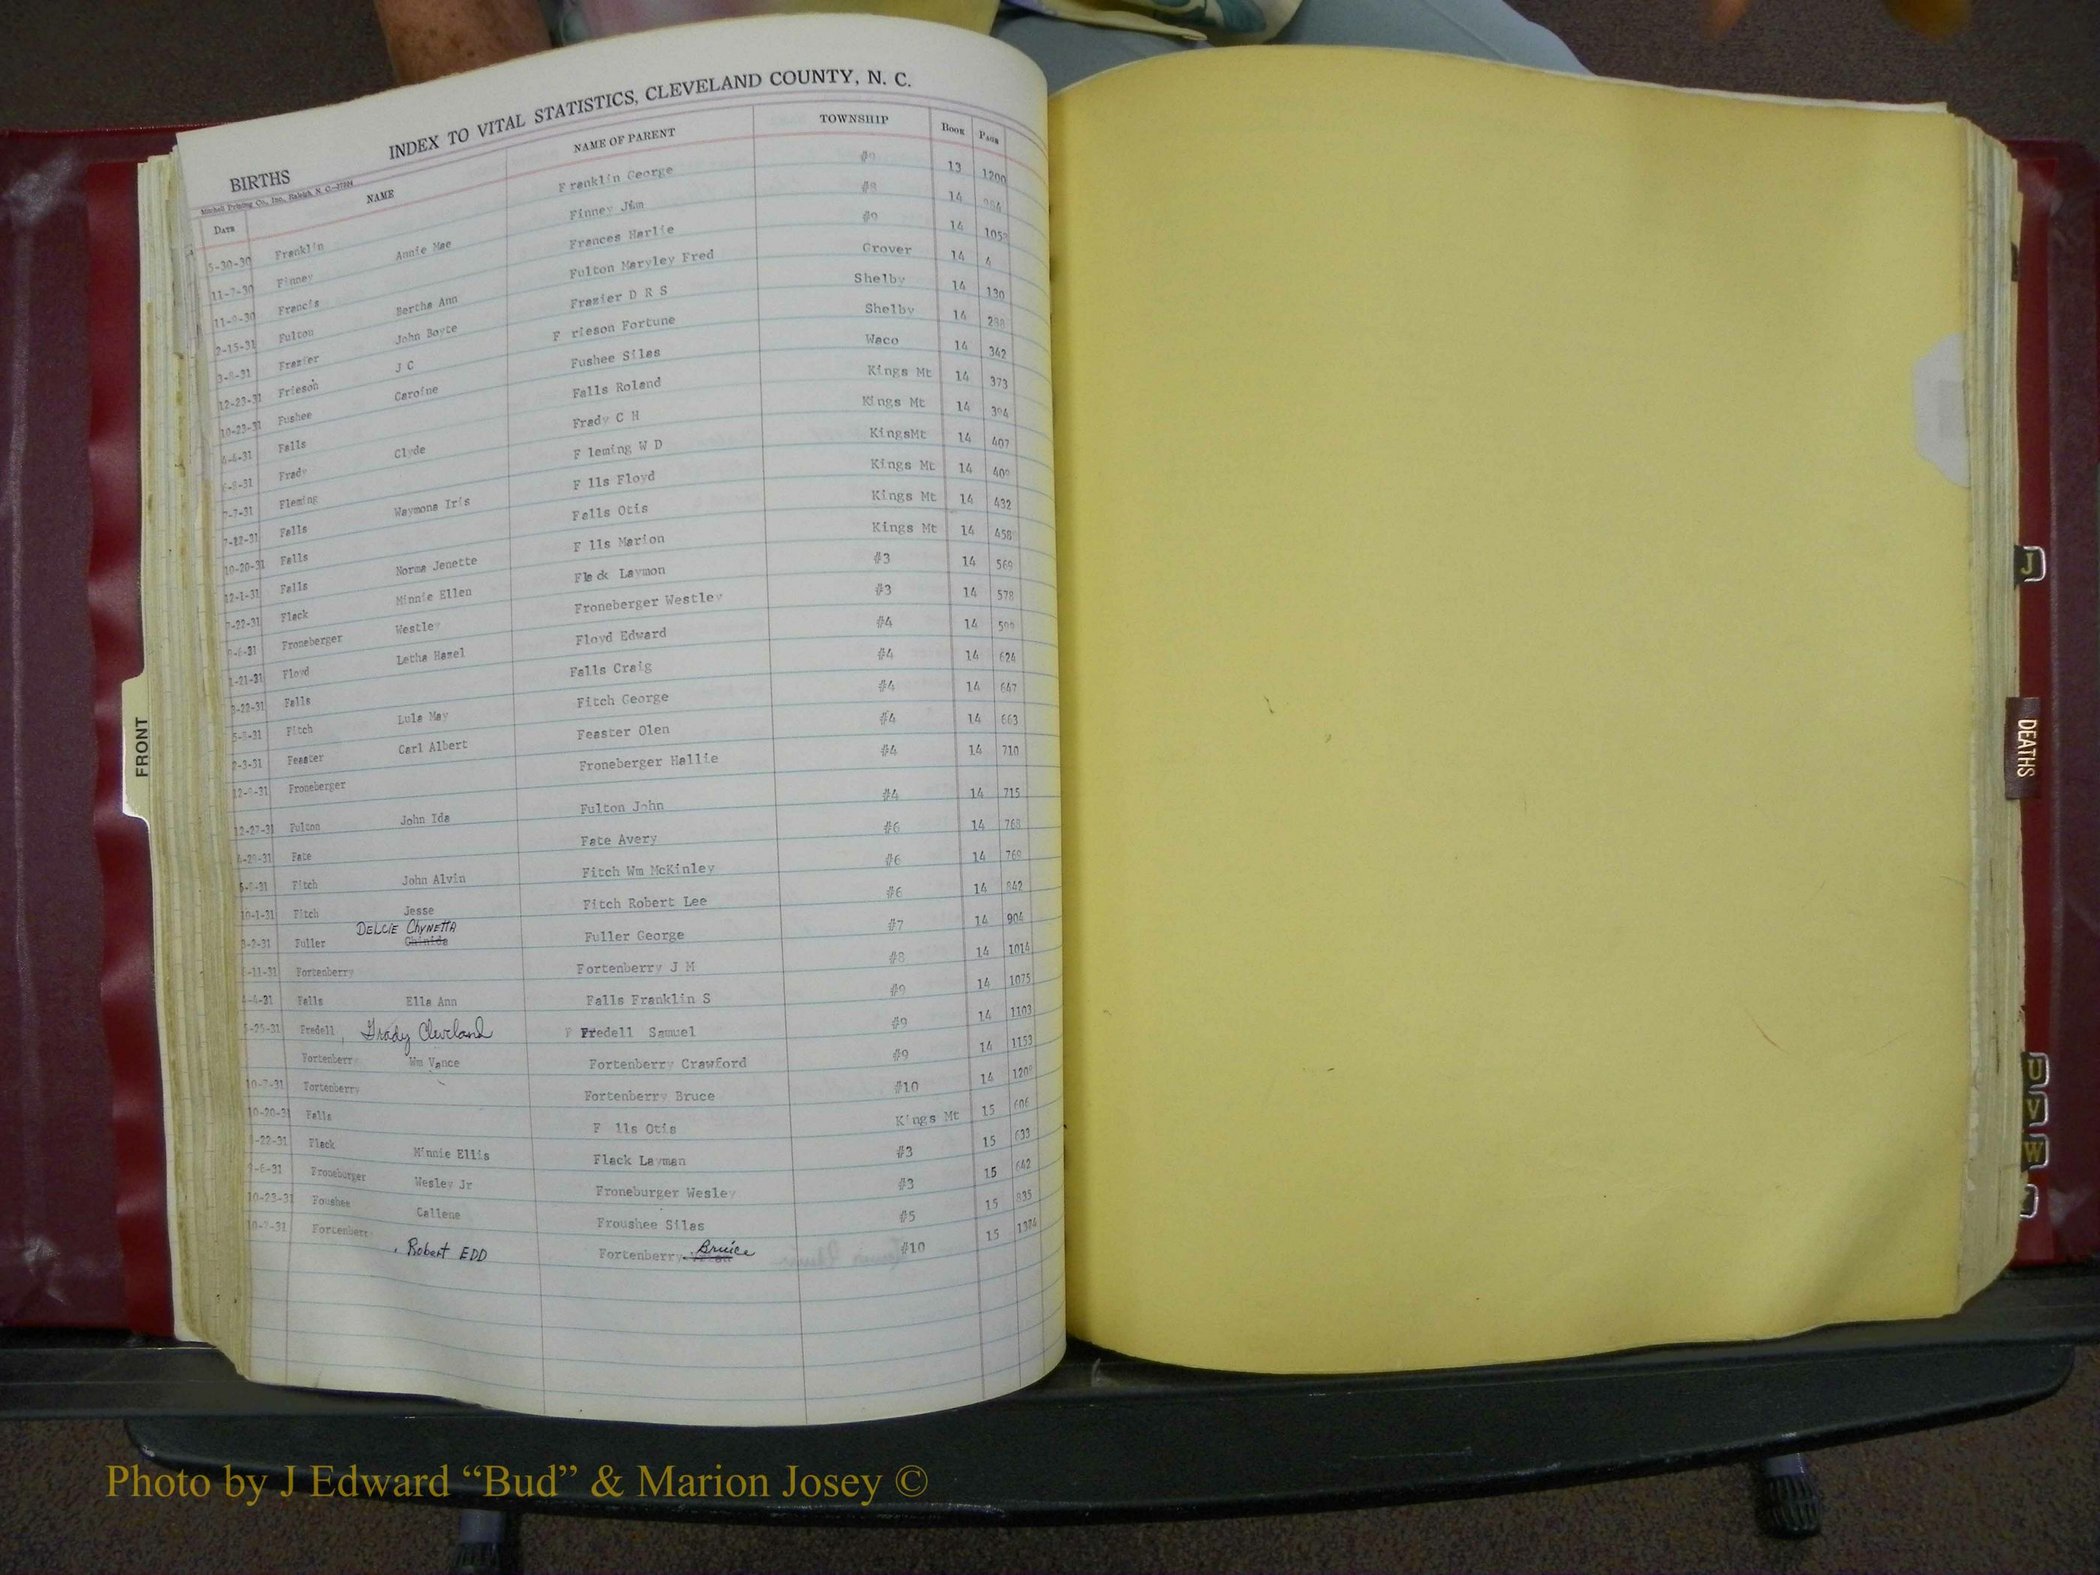 INDEX TO VITAL STATISTICS, CLEVELAND COUNTY, N. C.
BIRTHS
Mitchell Printing Co., Inc., Raleigh, N. C.
DATE NAME NAME OF PARENT TOWNSHIP BOOK PAGE
5-30-30 Franklin Annie Mae Franklin George 13 1200
11-7-30 Finney Finney Jim #8 14
11-9-30 Francis Bertha Ann Frances Harlie #9 14
2-15-31 Fulton John Boyte Fulton Maryley Fred Grover 14 4
3-8-31 Frazier J C Frazier D R S Shelby 14 130
12-23-31 Frieson Caroine F rieson Fortune Shelby 14 288
10-23-31 Fushee Fushee Silas Waco 14 342
4-4-31 Falls Clyde Falls Roland Kings Mt 14 373
6-8-31 Frady Frady C H Kings Mt 14 394
7-7-31 Fleming Waymona Iris F leming W D KingsMt 14 407
7-22-31 Falls F lls Floyd Kings Mt 14 409
10-20-31 Falls Norma Jenette Falls Otis Kings Mt 14 432
12-1-31 Falls Minnie Ellen F lls Marion Kings Mt 14 458
7-22-31 Flack Westley Flack Laymon #3 14 569
9-6-31 Froneberger Letha Hazel Froneberger Westley #3 14 578
1-21-31 Floyd Floyd Edward #4 14 599
3-22-31 Falls Lula May Falls Craig #4 14 624
5-8-31 Fitch Carl Albert Fitch George #4 14 647
2-3-31 Feaster Feaster Olen #4 14 663
12-9-31 Froneberger Froneberger Hallie #4 14 710
12-27-31 Fulton John Ida Fulton John #4 14 715
4-29-31 Fate Fate Avery #6 14 768
Fitch John Alvin Fitch Wm McKinley #6 14 769
10-1-31 Fitch Jesse Fitch Robert Lee #6 14 842
DELCIE CHYNETTA
3-2-31 Fuller Chinida Fuller George #7 14 904
-11-31 Fortenberry Fortenberry J M #8 14 1014
4-4-31 Falls Ella Ann Falls Franklin S #9 14 1075
-25-31 Fredell, Grady Cleveland F Fredell Samuel #9 14 1103
Fortenberr Wm Vance Fortenberry Crawford #9 14 1153
10-7-31 Fortenberry Fortenberry Bruce #10 14 1209
10-20-31 Falls F lls Otis Kings Mt 15 606
-22-31 Flack Minnie Ellis Flack Layman #3 15 633
9-6-31 Froneburger Wesley Jr Froneburger Wesley #3 15 642
10-23-31 Foushee Callene Froushee Silas #5 15 835
10-7-31 Fortenberr , Robert EDD Fortenberry Bruice #10 15 1384
FRONT
J
DEATHS
U
V
W
Photo by J Edward “Bud” & Marion Josey ©